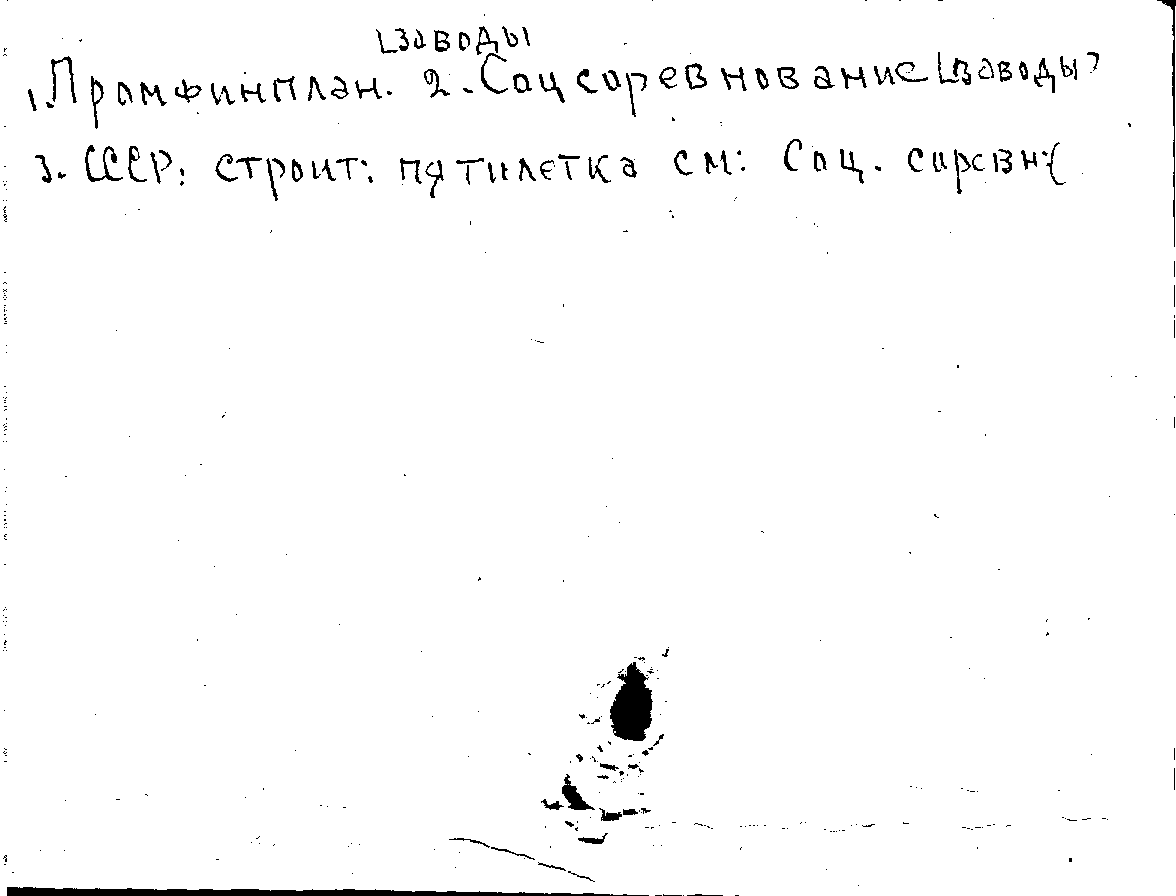 [заводы
1. Промфинплан. 2. Соцсоревнование [заводы]
3. СССР: строит: пятилетка см: Соц. соревн:(